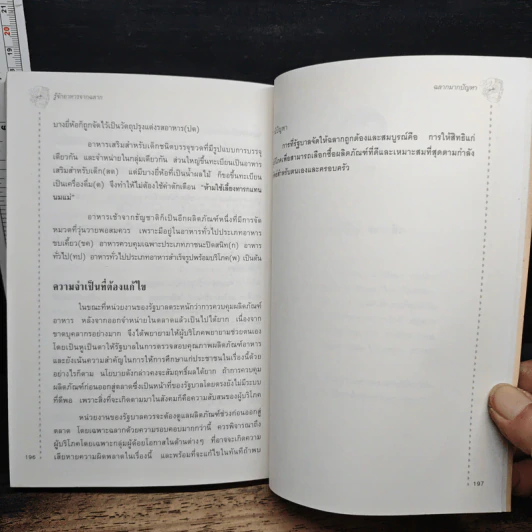 รู้จักอาหารจากฉลาก
บางยี่ห้อก็ถูกจัดไว้เป็นวัตถุปรุงแต่งรสอาหาร(ปค)
อาหารเสริมสำหรับเด็กชนิดบรรจุขวดที่มีรูปแบบการบรรจุ
เดียวกัน และจำหน่ายในกลุ่มเดียวกัน ส่วนใหญ่ขึ้นทะเบียนเป็นอาหาร
เสริมสำหรับเด็ก(ลด) แต่มีบางยี่ห้อที่เป็นน้ำผลไม้ ก็ขอขึ้นทะเบียน
เป็นเครื่องดื่ม(ด) จึงทำให้ไม่ต้องใช้คำตักเตือน "ห้ามใช้เลี้ยงทารกแทน
นมแม่"
อาหารเช้าจากธัญชาติก็เป็นอีกผลิตภัณฑ์หนึ่งที่มีการจัด
หมวดที่วุ่นวายพอสมควร เพราะมีอยู่ในอาหารทั่วไปประเภทอาหาร
ขบเคี้ยว(ขค) อาหารควบคุมเฉพาะประเภทภาชนะปิดสนิท(ก) อาหาร
ทั่วไป(ทป) อาหารทั่วไปประเภทอาหารสำเร็จรูปพร้อมบริโภค(พ) เป็นต้น
ความจำเป็นที่ต้องแก้ไข
ในขณะที่หน่วยงานของรัฐบาลตระหนักว่าการควบคุมผลิตภัณฑ์
อาหาร หลังจากออกจำหน่ายในตลาดแล้วเป็นไปได้ยาก เนื่องจาก
ขาดบุคลากรอย่างมาก จึงได้พยายามให้ผู้บริโภคพยายามช่วยตนเอง
โดยเป็นหูเป็นตาให้รัฐบาลในการตรวจสอบคุณภาพผลิตภัณฑ์อาหาร
และยังเน้นความสำคัญในการให้การศึกษาแก่ประชาชนในเรื่องนี้ด้วย
อย่างไรก็ตาม นโยบายดังกล่าวคงจะสัมฤทธิ์ผลได้ยาก ถ้าการควบคุม
ผลิตภัณฑ์ก่อนออกสู่ตลาดซึ่งเป็นหน้าที่ของรัฐบาลโดยตรงยังไม่มีระบบ
ที่ดีพอ เพราะสิ่งที่จะเกิดตามมาในสังคมก็คือความสับสนของผู้บริโภค
หน่วยงานของรัฐบาลควรจะต้องดูแลผลิตภัณฑ์ช่วงก่อนออกสู่
ตลาด โดยเฉพาะฉลากด้วยความรอบคอบมากกว่านี้ ควรพิจารณาถึง
ผู้บริโภคโดยเฉพาะกลุ่มผู้ด้อยโอกาสในด้านต่างๆ ที่อาจจะเกิดความ
เสียหายความผิดพลาดในเรื่องนี้ และพร้อมที่จะแก้ไขในทันทีถ้าพบ
196
ฉลากมากปัญหา
ปัญหา
การที่รัฐบาลจัดให้ฉลากถูกต้องและสมบูรณ์คือ การให้สิทธิแก่
สามารถเลือกซื้อผลิตภัณฑ์ที่ดีและเหมาะสมที่สุดตามกำลัง
สำหรับตนเองและครอบครัว
197